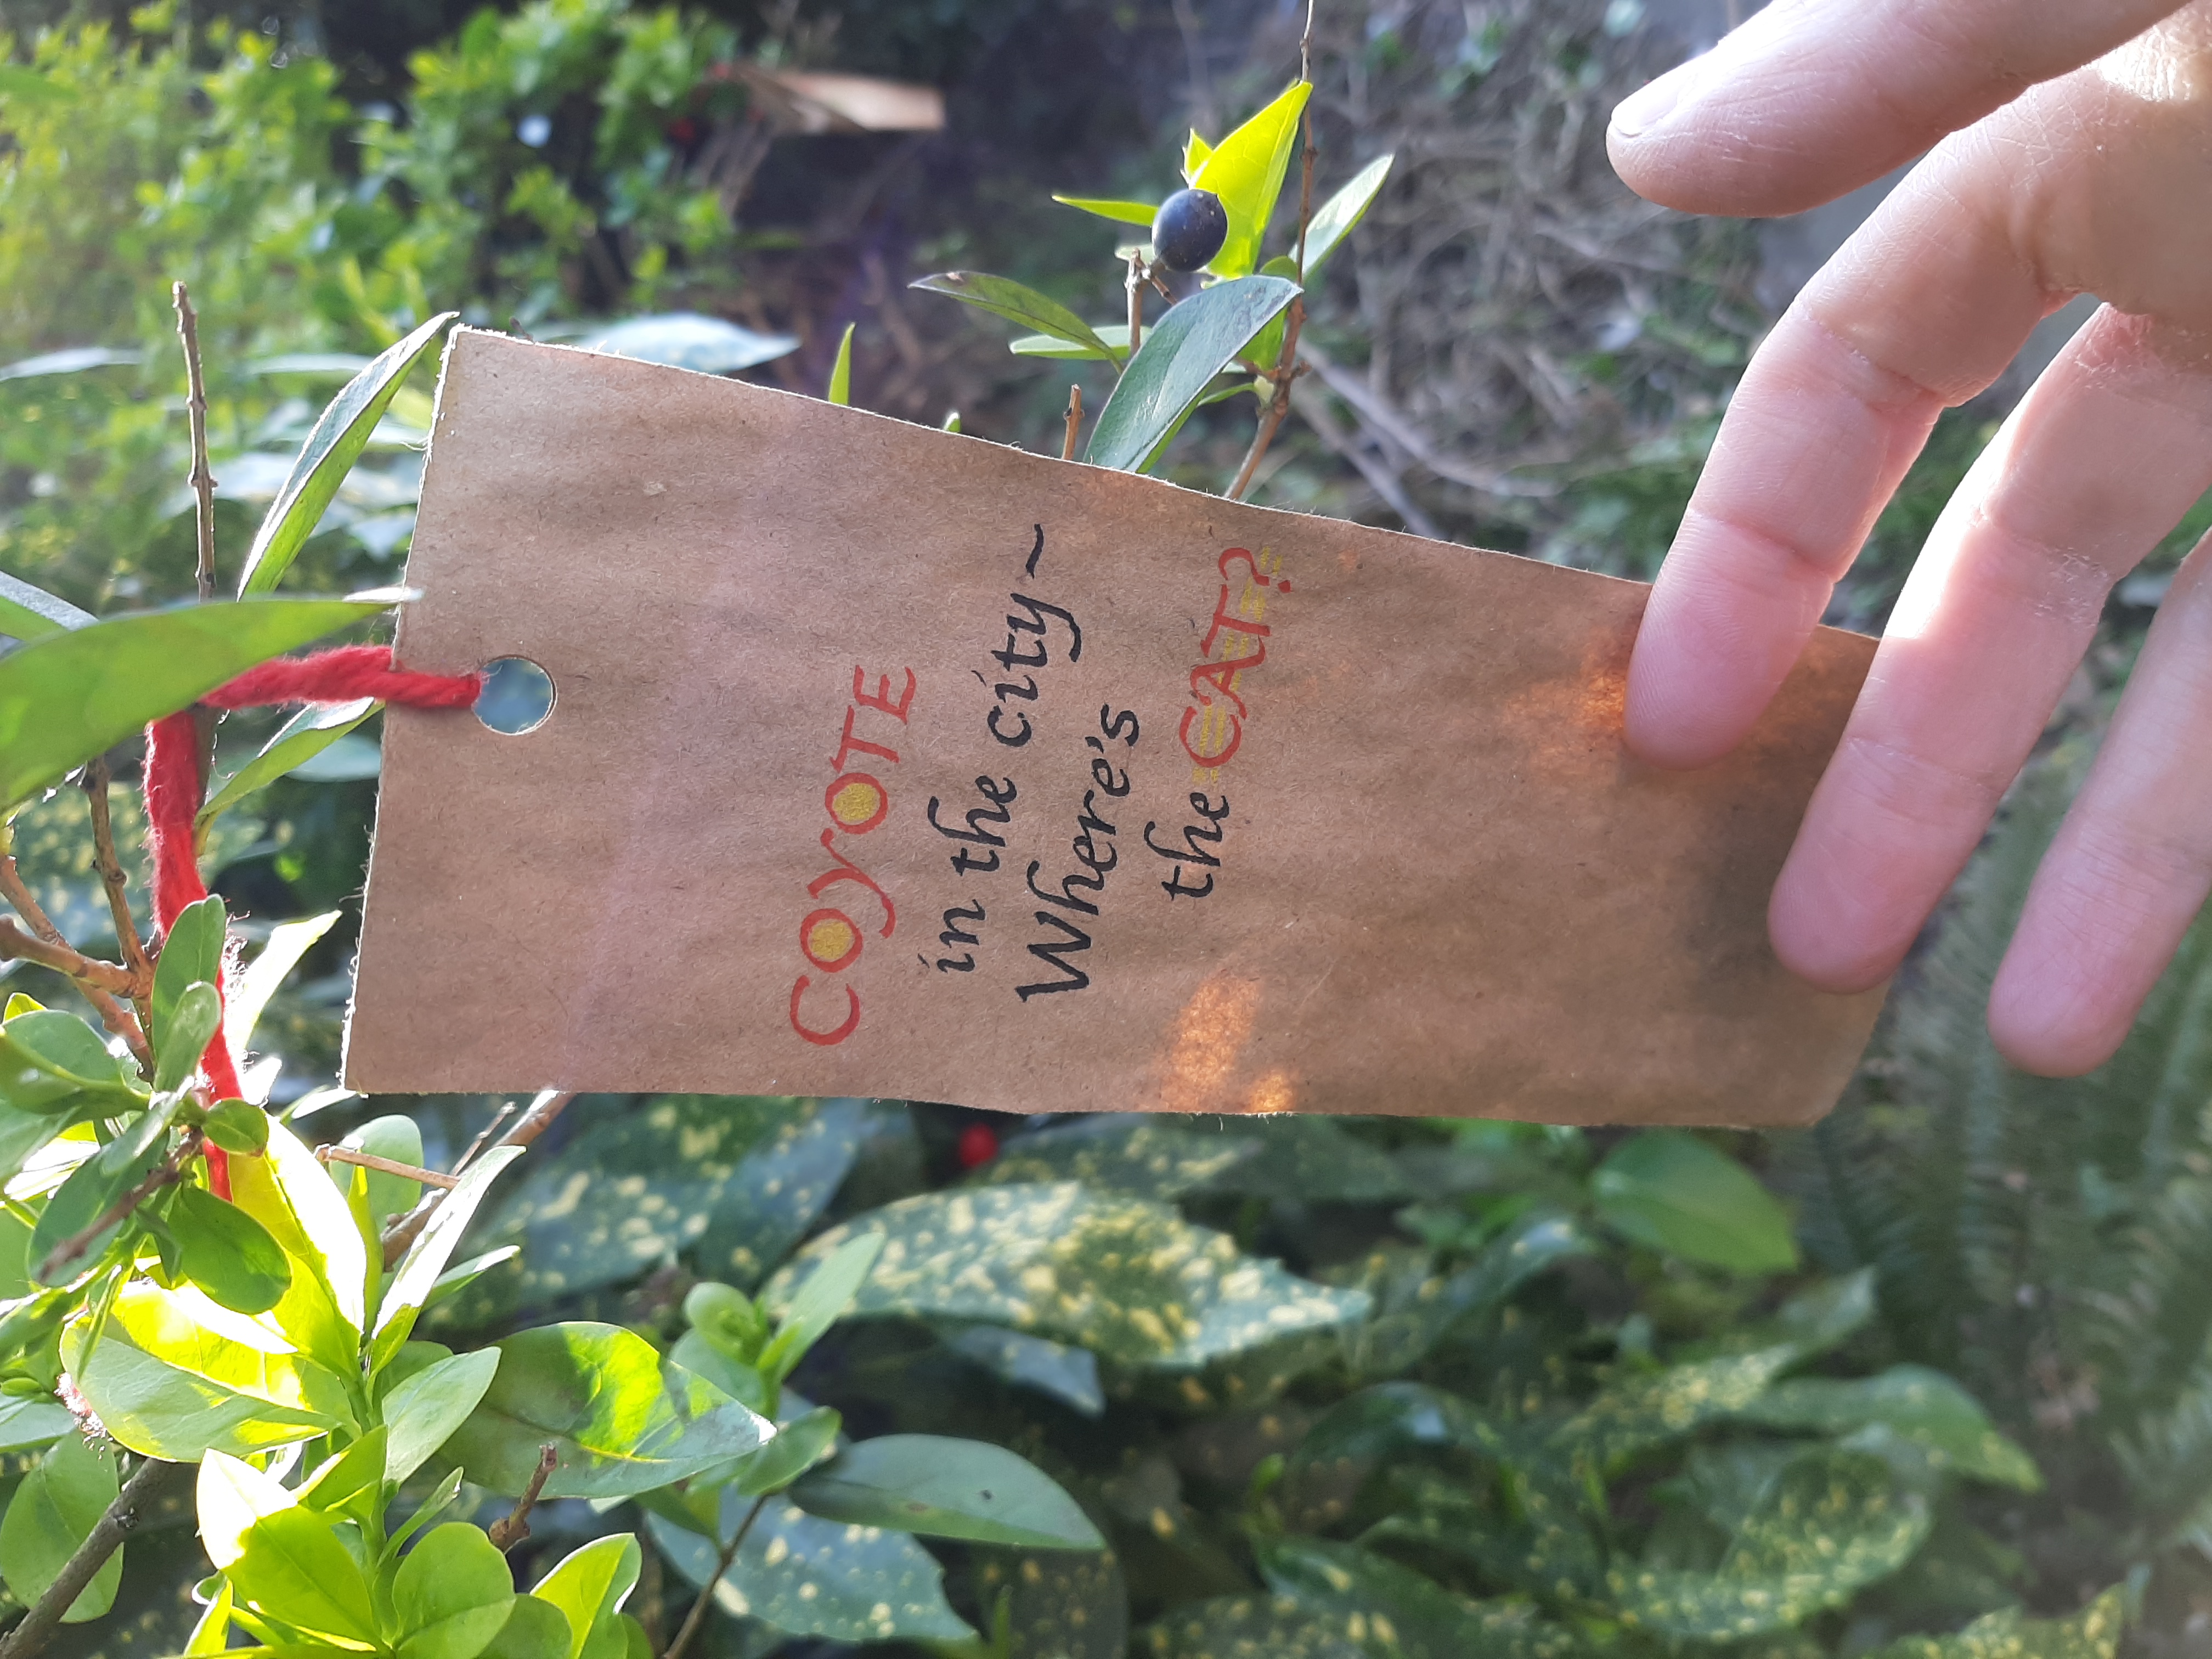 COYOTE
in the city~
Where's
the CAT?